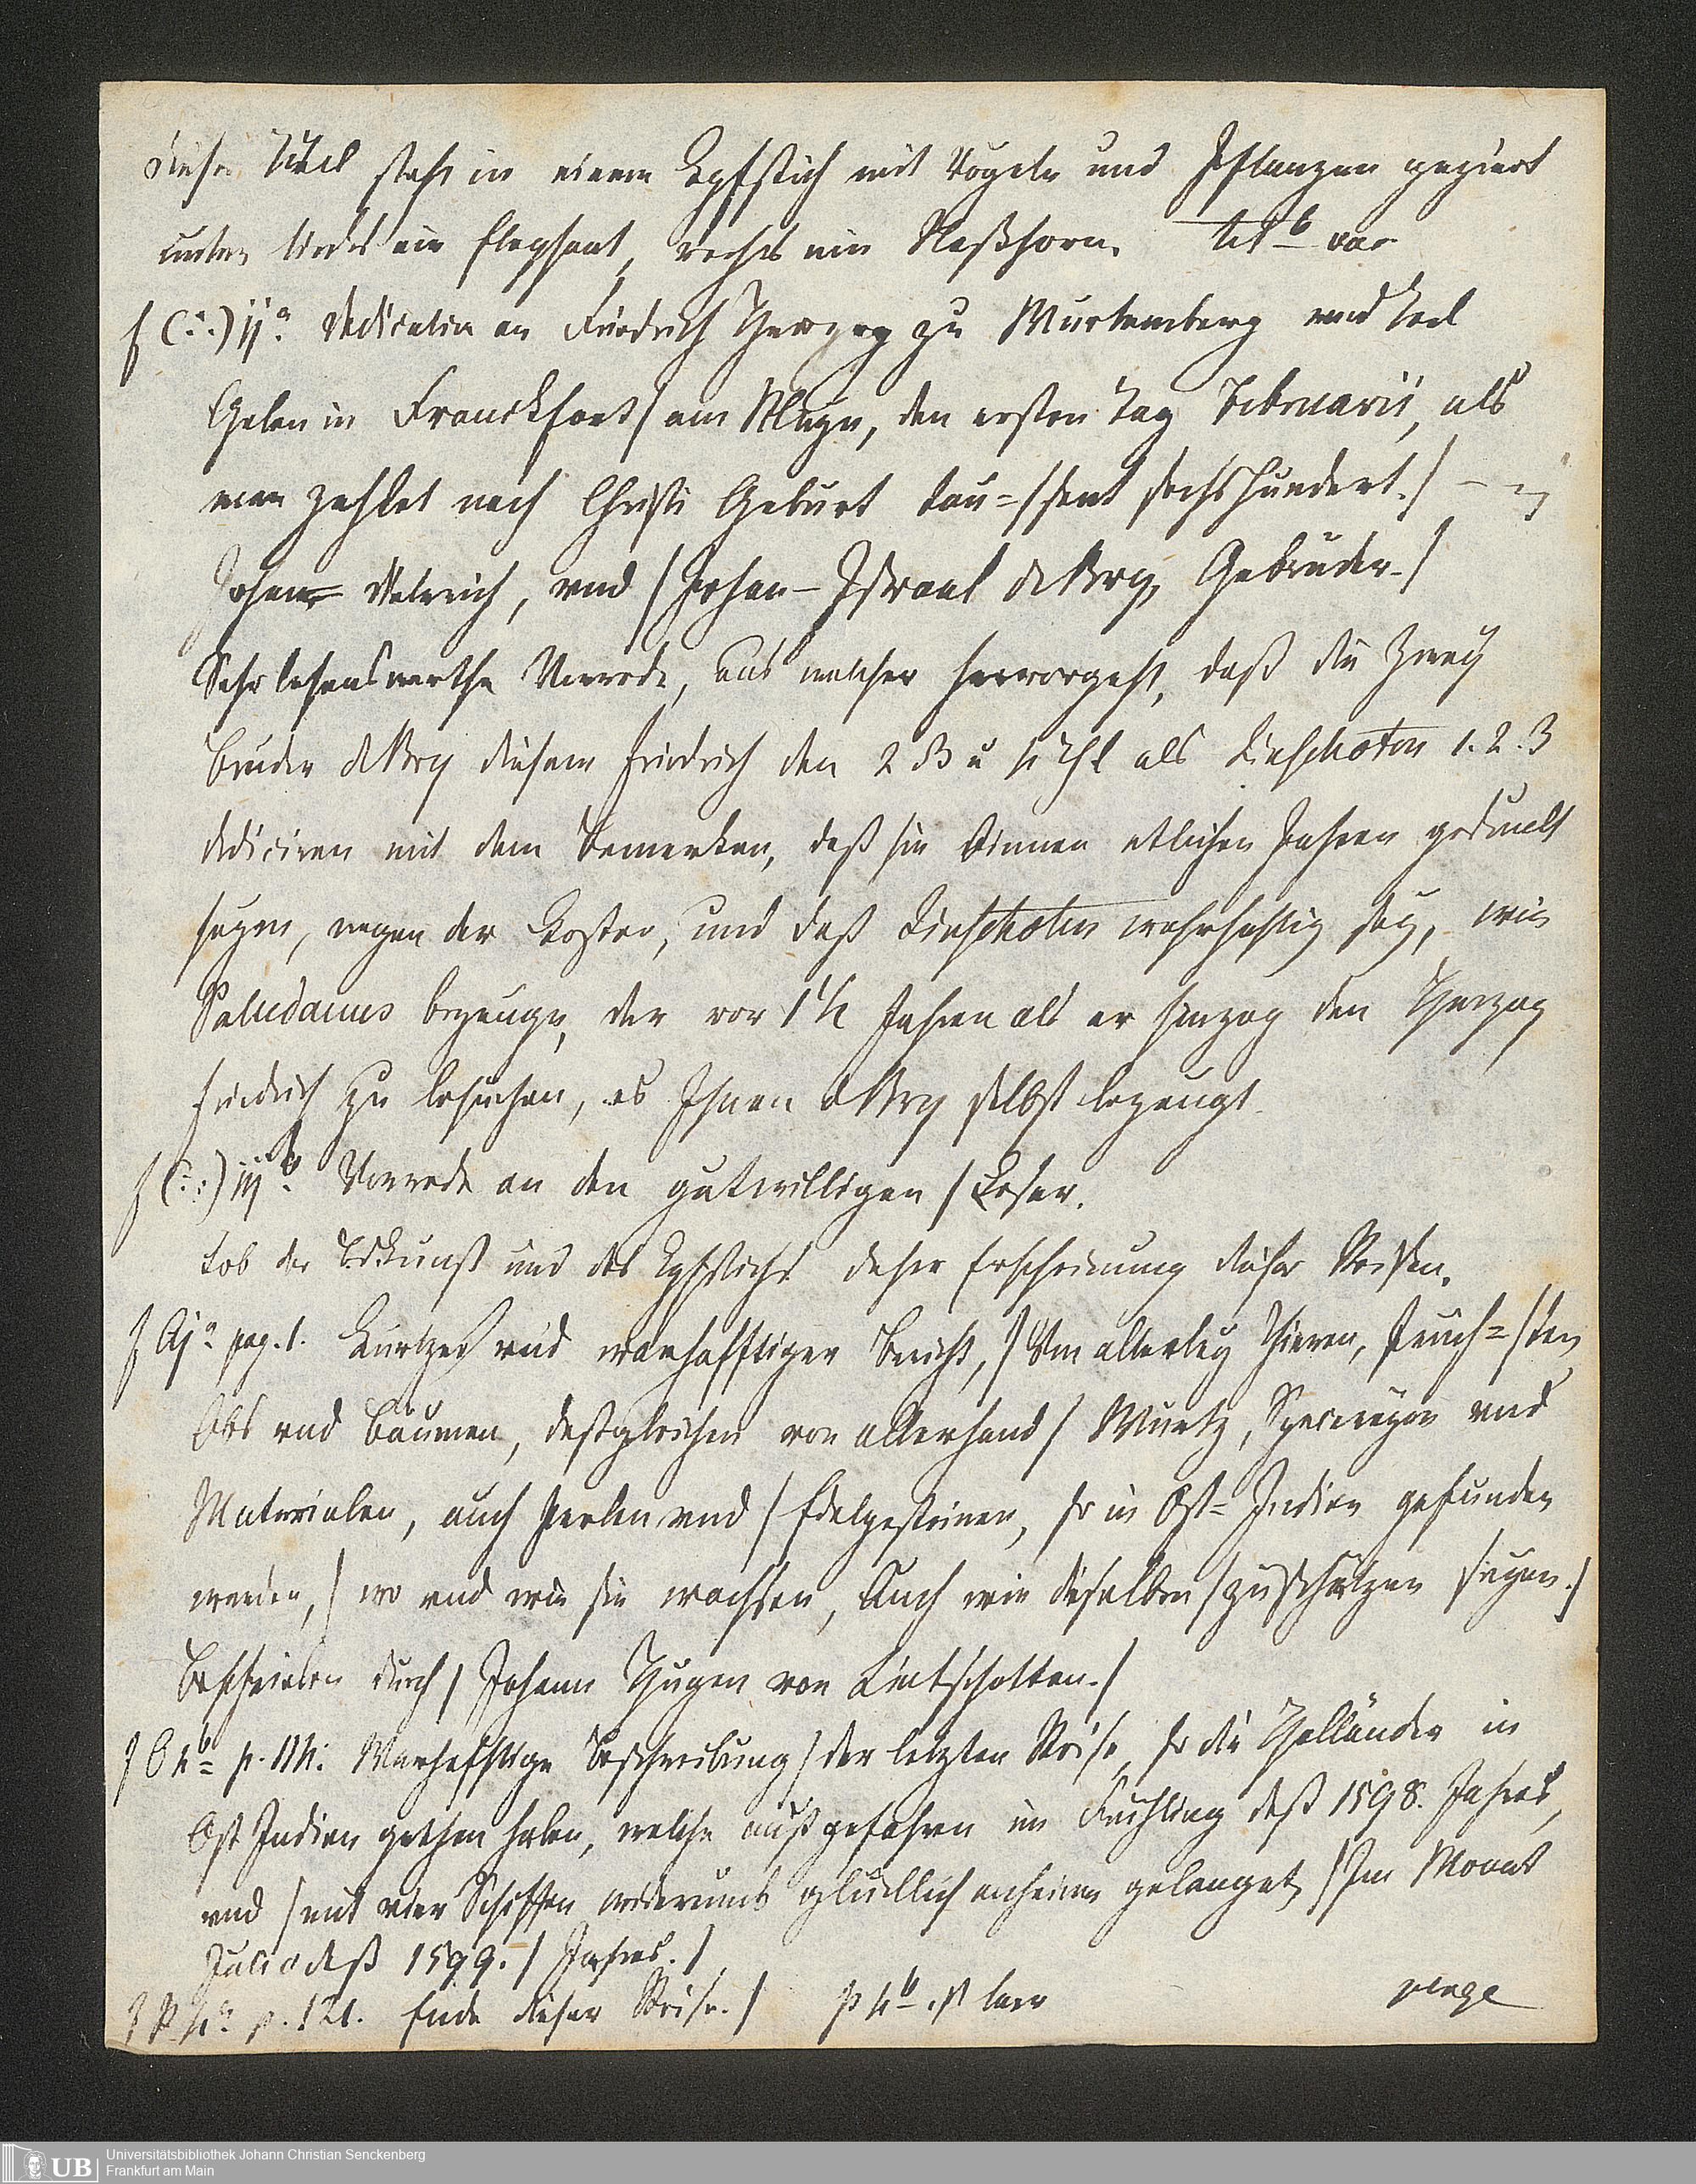 Dieser Titel steht in einem Kpfstich mit Vögeln und Pflanzen geziert
unten links ein Elephant, rechts ein Naßhorn. tit b vac
f (:.) ij a. Dedication an Friedrich Hertzog zu Wurtemberg und Teck
Geben in Franckfort / am Mayn, den ersten tag Februarii, als
man zehlet nach Christi Geburt tau= / sent sechshundert. / –
Johan= Dieterich, vnd / Johan – Israel de Bry, Gebruder. /
Sehr lesenswerthe Vorrede, aus welcher hervorgeht, daß die zwey
Bruder de Bry diesem Friedrich den 2 3 u 4 Thl als Linschoten 1. 2. 3
dediciren mit dem Bemerken, daß sie binnen etlichen Jahren
seyen, wegen der Kosten, und daß Linschoten wahrhaftig sey, wie
Paludanus bezeuge, der vor 1½ Jahren als er hinzog den Herzog
Friedrich zu besuchen, es Ihnen de Bry selbst bezeugt.
f (:.:) iij b. Vorrede an den gutwilligen / Leser.
Lob der und des Kpfstichs daher Erscheinung dieser Reisen.
f Aj a. pag. 1. Kurtzer vnd warhafftiger Bericht, / Von allerley Thieren, Fruch= / ten
Obs vnd Bäumen, deßgleichen von allerhand / Wurtz, Specereyen vnd
Materialen, auch Perlen vnd / Edelgesteinen, so in Ost= Indien gefunden
werden, / wo vnd wie sie wachsen, Auch wie dieselben / zuschätzen seyen. /
Beschrieben durch / Johann Hugen von Lintschotten. /
f O 4 b p. 114: Warhafftige Beschreibung / der letzten Reise, so die Holländer in
Ost Indien gethan haben, welche außgefahren im Frühling deß 1598. Jahres,
vnd / mit vier Schiffen widerumb glucklich anheim gelanget, / Im Monat
Julio deß 1599. / Jahres. /
f P 4 a p. 121. Ende dieser Reise. / P 4 b ist leer verge
UB Universitätsbibliothek Johann Christian Senckenberg
Frankfurt am Main